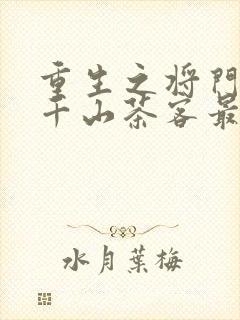 重生之将门
千山茶客最
水月叶梅